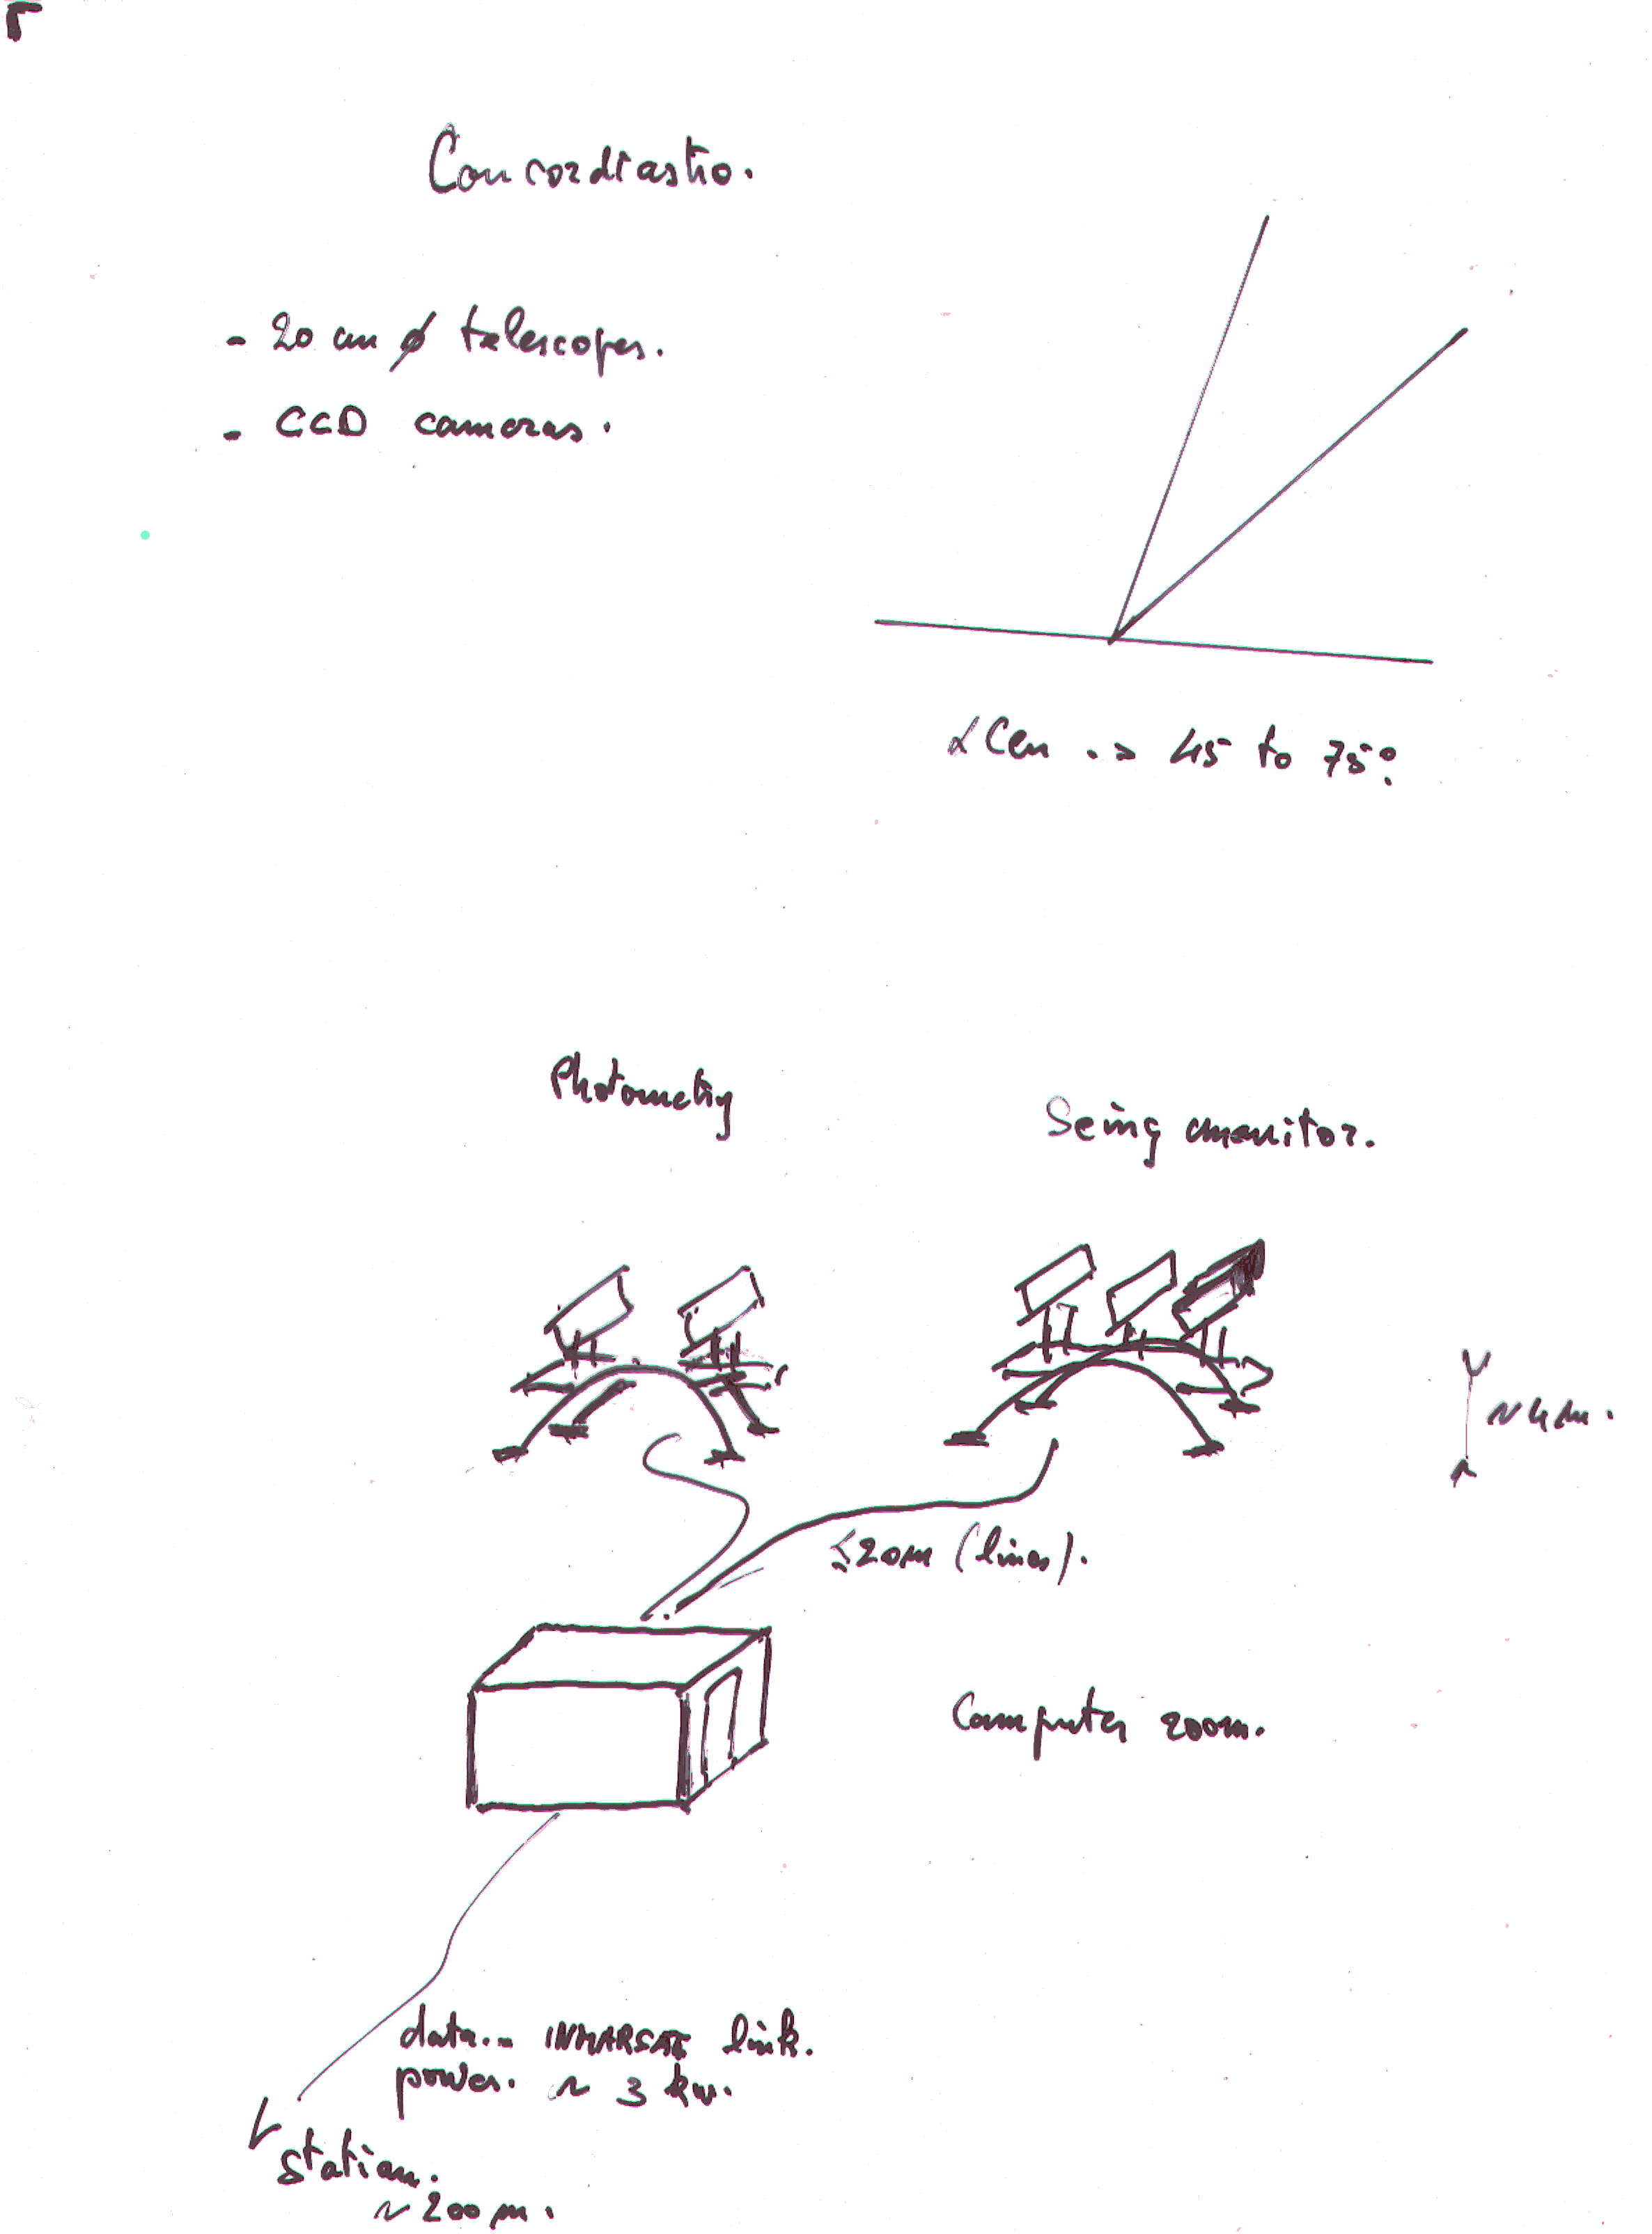 Concordiastro.
- 20 cm ø telescopes.
- CCD cameras.
α Cen -> 45 to 75°.
Photometry
Seing monitor.
~ 4 m.
≤ 20 m (lines).
Computer room.
data -- INMARSAT link.
power. ~ 3 kw.
station.
~ 200 m.